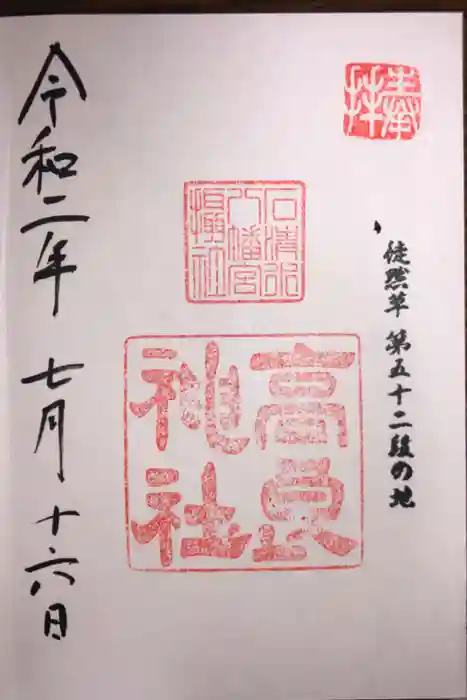 奉拝
徒然草 第五十二段の地
石清水
八幡宮
摂社
高良
神社
令和二年 七月 十六日